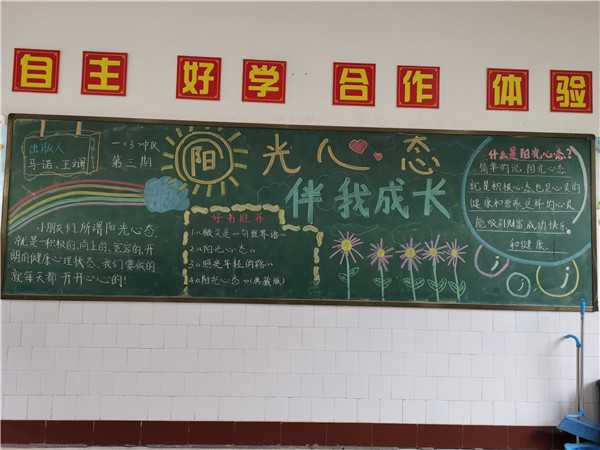 自主 好学 合作 体验
出版人
马诺、王
一<3>中队
第三期
阳光心态
伴我成长
小朋友们,所谓阳光心态,
就是一积极的,向上的,宽容的,开
朗的健康心理状态,我们要做的
就每天都开开心心的!
好书推荐
1.《微笑是一句世界语》
2.《阳光心态》
3.《照亮年轻的路》
4.《阳光心态》(典藏版)
什么是阳光心态?
简单的说,阳光心态
就是积极心态,也是心灵的
健康和营养,这样的心灵
能吸引财富,成功,快乐
和健康